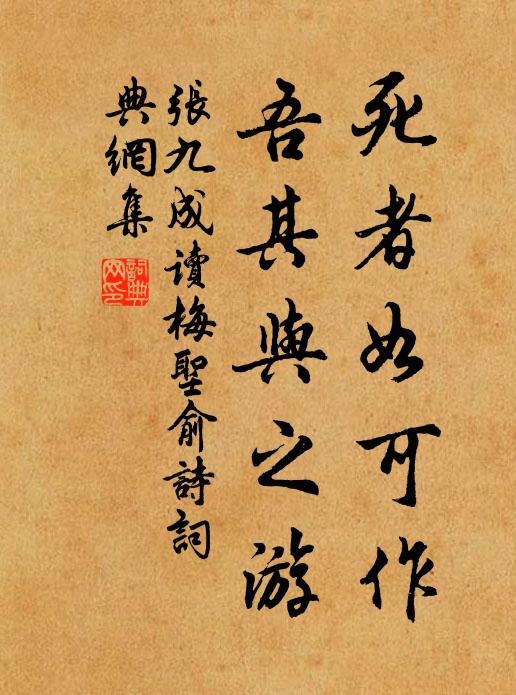 死者如可作
吾其與之游
張九成讀梅聖俞詩詞
典網集
詞典
网印